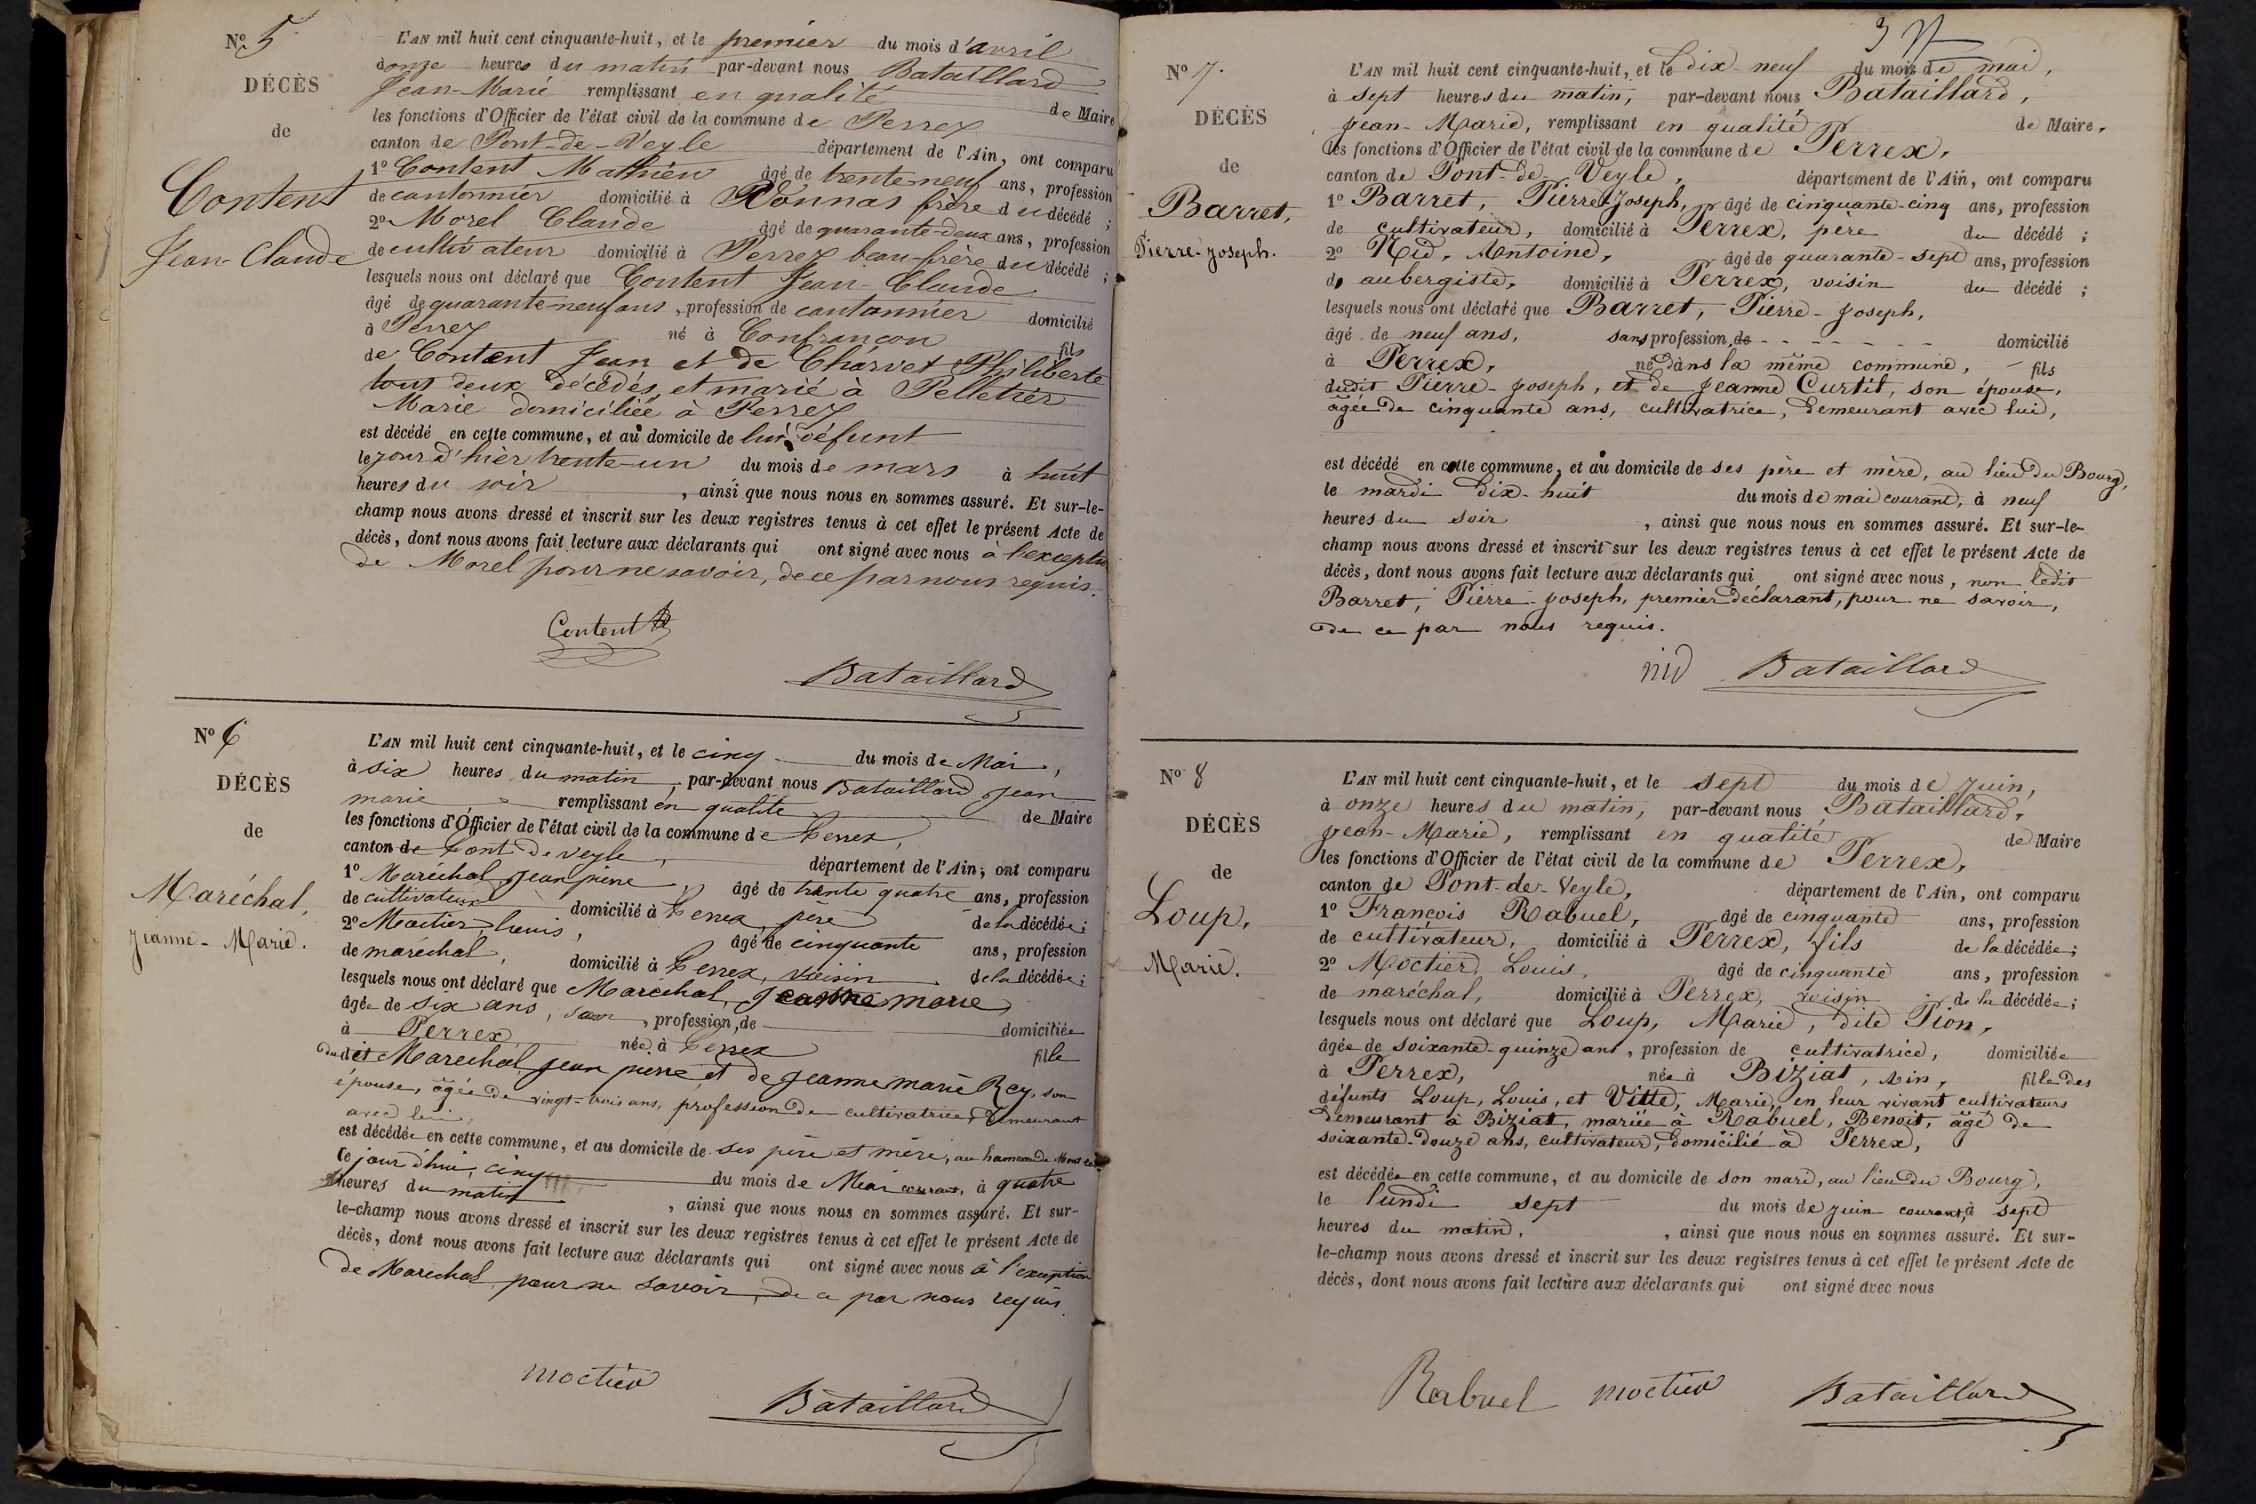 Nº 5
DÉCÈS
de
Content
Jean-Claude
L'AN mil huit cent cinquante-huit, et le premier du mois d'avril
à onze heures du matin par-devant nous Bataillard
Jean-Marie remplissant en qualité de Maire
les fonctions d'Officier de l'état civil de la commune de Perrex
canton de Pont-de-Veyle département de l'Ain, ont comparu
1º Content Mathieu âgé de trente-neuf ans, profession
de cantonnier domicilié à Vonnas frère du décédé ;
2º Morel Claude âgé de quarante-deux ans, profession
de cultivateur domicilié à Perrex beau-frère du décédé ;
lesquels nous ont déclaré que Content Jean-Claude
âgé de quarante-neuf ans, profession de cantonnier domicilié
à Perrex né à Confrançon fils
de Content Jean et de Charvet Philiberte
tous deux décédés, et marié à Pelletier
Marie domiciliée à Perrex
est décédé en cette commune, et au domicile de lui défunt
le jour d'hier trente-un du mois de mars à huit
heures du soir, ainsi que nous nous en sommes assuré. Et sur-le-
champ nous avons dressé et inscrit sur les deux registres tenus à cet effet le présent Acte de
décès, dont nous avons fait lecture aux déclarants qui ont signé avec nous à l'exception
de Morel pour ne savoir, de ce par nous requis.
Content
Bataillard
Nº 6
DÉCÈS
de
Maréchal,
Jeanne-Marie.
L'AN mil huit cent cinquante-huit, et le cinq du mois de Mai,
à six heures du matin, par-devant nous Bataillard Jean
marie remplissant en qualité de Maire
les fonctions d'Officier de l'état civil de la commune de Perrex,
canton de Pont de veyle, département de l'Ain, ont comparu
1º Maréchal, Jean pierre, âgé de trente quatre ans, profession
de cultivateur domicilié à Perrex, père de la décédée ;
2º Moctier, Louis, âgé de cinquante ans, profession
de maréchal, domicilié à Perrex, voisin de la décédée ;
lesquels nous ont déclaré que Maréchal, Jeanne marie,
âgée de six ans, sans, profession, de domiciliée
à Perrex, née à Perrex fille
dudit Maréchal Jean pierre et de Jeanne marie Rey, son
épouse, âgée de vingt-trois ans, profession de cultivatrice, demeurant
avec lui,
est décédée en cette commune, et au domicile de ses père et mère, au hameau de
ce jour d'hui, cinq du mois de Mai courant, à quatre
heures du matin, ainsi que nous nous en sommes assuré. Et sur-
le-champ nous avons dressé et inscrit sur les deux registres tenus à cet effet le présent Acte de
décès, dont nous avons fait lecture aux déclarants qui ont signé avec nous à l'exception
de Maréchal, pour ne savoir, de ce par nous requis.
Moctier
Bataillard
3
Nº 7.
DÉCÈS
de
Barret,
Pierre-Joseph.
L'AN mil huit cent cinquante-huit, et le dix-neuf du mois de mai,
à sept heures du matin, par-devant nous Bataillard,
Jean-Marie, remplissant en qualité de Maire.
les fonctions d'Officier de l'état civil de la commune de Perrex,
canton de Pont-de-Veyle, département de l'Ain, ont comparu
1º Barret, Pierre-Joseph, âgé de cinquante-cinq ans, profession
de cultivateur, domicilié à Perrex, père du décédé ;
2º Nid, Antoine, âgé de quarante-sept ans, profession
d' aubergiste, domicilié à Perrex, voisin du décédé ;
lesquels nous ont déclaré que Barret, Pierre-Joseph,
âgé de neuf ans, sans profession de domicilié
à Perrex, né dans la même commune, fils
dudit Pierre-Joseph, et de Jeanne Curtit, son épouse,
âgée de cinquante ans, cultivatrice, demeurant avec lui,
est décédé en cette commune, et au domicile de ses père et mère, au lieu du Bourg,
le mardi dix-huit du mois de mai courant, à neuf
heures du soir, ainsi que nous nous en sommes assuré. Et sur-le-
champ nous avons dressé et inscrit sur les deux registres tenus à cet effet le présent Acte de
décès, dont nous avons fait lecture aux déclarants qui ont signé avec nous, non ledit
Barret, Pierre-Joseph, premier déclarant, pour ne savoir,
de ce par nous requis.
nid Bataillard
Nº 8
DÉCÈS
de
Loup,
Marie.
L'AN mil huit cent cinquante-huit, et le sept du mois de Juin,
à onze heures du matin, par-devant nous Bataillard,
Jean-Marie, remplissant en qualité de Maire
les fonctions d'Officier de l'état civil de la commune de Perrex,
canton de Pont-de-Veyle, département de l'Ain, ont comparu
1º François Rabuel, âgé de cinquante ans, profession
de cultivateur, domicilié à Perrex, fils de la décédée ;
2º Moctier, Louis, âgé de cinquante ans, profession
de maréchal, domicilié à Perrex, voisin de la décédée ;
lesquels nous ont déclaré que Loup, Marie, dite Pion,
âgée de soixante-quinze ans, profession de cultivatrice, domiciliée
à Perrex, née à Biziat, Ain, fille des
défunts Loup, Louis, et Vitte, Marie, en leur vivant cultivateurs
demeurant à Biziat, mariée à Rabuel, Benoit, âgé de
soixante-douze ans, cultivateur, domicilié à Perrex,
est décédée en cette commune, et au domicile de son mari, au lieu du Bourg,
le lundi sept du mois de juin courant, à sept
heures du matin, ainsi que nous nous en sommes assuré. Et sur-
le-champ nous avons dressé et inscrit sur les deux registres tenus à cet effet le présent Acte de
décès, dont nous avons fait lecture aux déclarants qui ont signé avec nous
Rabuel Moctier Bataillard